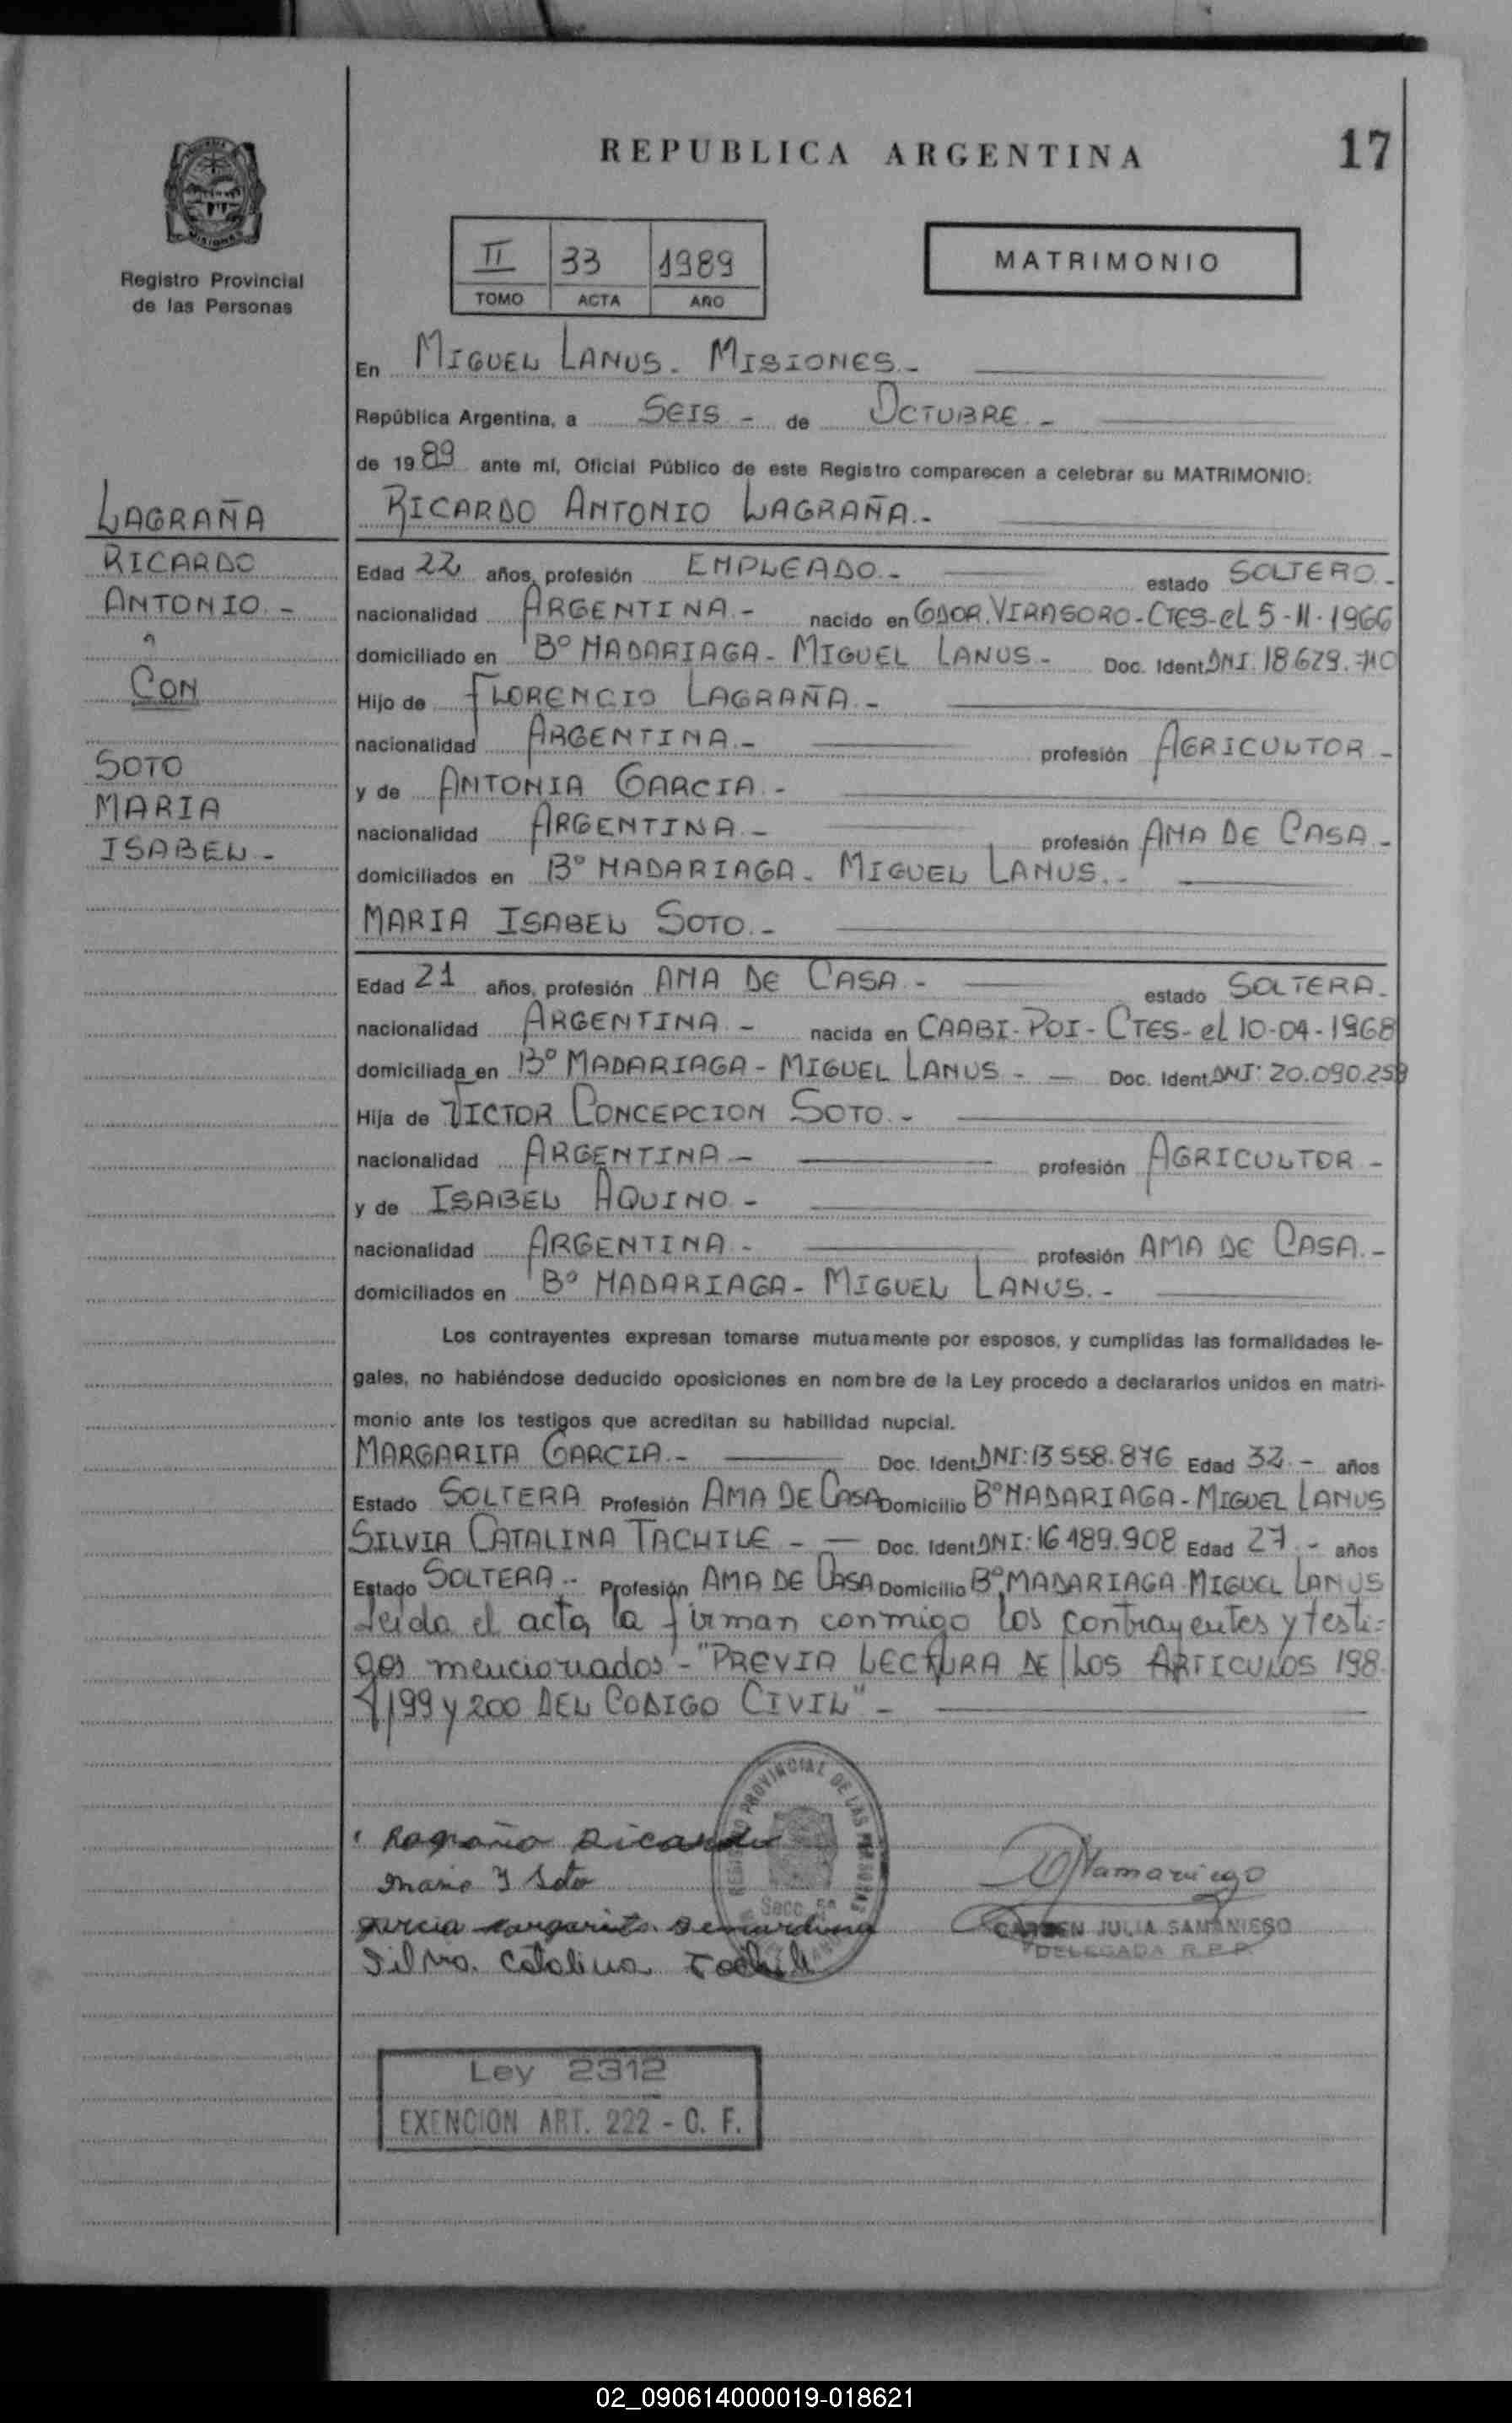 REPUBLICA ARGENTINA
17
Registro Provincial
de las Personas
II 33 1989
TOMO ACTA AÑO
MATRIMONIO
En MIGUEL LANUS - MISIONES.-
República Argentina, a SEIS - de OCTUBRE.-
de 1989 ante mí, Oficial Público de este Registro comparecen a celebrar su MATRIMONIO:
RICARDO ANTONIO LAGRAÑA.-
LAGRAÑA
RICARDO
ANTONIO.-
CON
SOTO
MARIA
ISABEL-
Edad 22 años, profesión EMPLEADO.- estado SOLTERO-
nacionalidad ARGENTINA.- nacido en GDOR. VIRASORO-CTES-el 5-11-1966
domiciliado en Bº MADARIAGA- MIGUEL LANUS- Doc. Ident. DNI. 18.629.
Hijo de FLORENCIO LAGRAÑA.-
nacionalidad ARGENTINA.- profesión AGRICULTOR-
y de ANTONIA GARCIA.-
nacionalidad ARGENTINA.- profesión AMA DE CASA-
domiciliados en Bº MADARIAGA- MIGUEL LANUS.-
MARIA ISABEL SOTO.-
Edad 21 años, profesión AMA DE CASA- estado SOLTERA-
nacionalidad ARGENTINA- nacida en CAABI-POI-CTES-el 10-04-1968
domiciliada en Bº MADARIAGA-MIGUEL LANUS-- Doc. Ident. DNI: 20.090.25
Hija de VICTOR CONCEPCION SOTO.-
nacionalidad ARGENTINA- profesión AGRICULTOR-
y de ISABEL AQUINO-
nacionalidad ARGENTINA- profesión AMA DE CASA.-
domiciliados en Bº MADARIAGA- MIGUEL LANUS.-
Los contrayentes expresan tomarse mutuamente por esposos, y cumplidas las formalidades le-
gales, no habiéndose deducido oposiciones en nombre de la Ley procedo a declararlos unidos en matri-
monio ante los testigos que acreditan su habilidad nupcial.
MARGARITA GARCIA.- Doc. Ident. DNI: 13.558.876 Edad 32.- años
Estado SOLTERA Profesión AMA DE CASA Domicilio Bº MADARIAGA-MIGUEL LANUS
SILVIA CATALINA TACHILE - - Doc. Ident. DNI: 16.489.908 Edad 27.- años
Estado SOLTERA.- Profesión AMA DE CASA Domicilio Bº MADARIAGA-MIGUEL LANUS
Leida el acta, la firman conmigo los contrayentes y testi-
gos mencionados - "PREVIA LECTURA DE LOS ARTICULOS 198
199 y 200 DEL CODIGO CIVIL"-
REGISTRO PROVINCIAL DE LAS PERSONAS
Secc. 5ª
Lagraña Ricardo
Maria I Soto
Garcia Margarita Bernardina
Silvia Catalina Tachile
Samaniego
CARMEN JULIA SAMANIEGO
DELEGADA R.P.P.
Ley 2312
EXENCION ART. 222 - C. F.
02_090614000019-018621